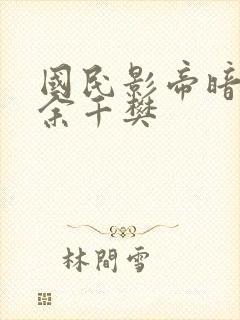 國民影帝暗
余千樊
林間雪